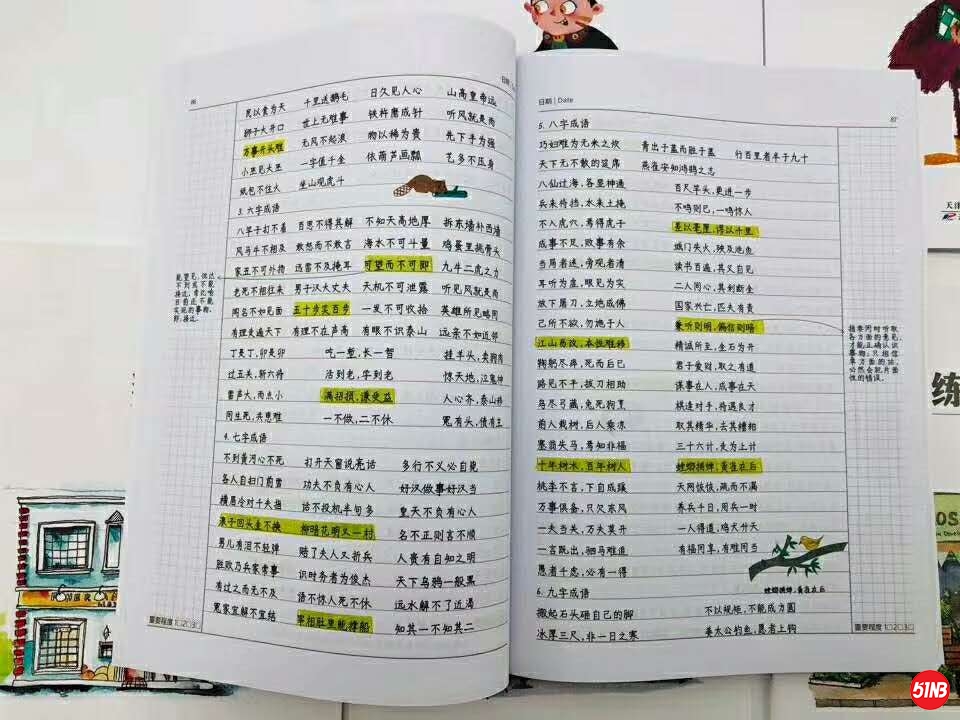 86
日期
民以食为天 千里送鹅毛 日久见人心 山高皇帝远
狮子大开口 世上无难事 铁杵磨成针 听风就是雨
万事开头难 无风不起浪 物以稀为贵 先下手为强
小巫见大巫 一字值千金 依葫芦画瓢 艺多不压身
纸包不住火 坐山观虎斗
3. 六字成语
八竿子打不着 百思不得其解 不知天高地厚 拆东墙补西墙
风马牛不相及 敢怒而不敢言 海水不可斗量 鸡蛋里挑骨头
家丑不可外扬 迅雷不及掩耳 可望而不可即 九牛二虎之力
老死不相往来 男子汉大丈夫 天机不可泄露 听见风就是雨
闻名不如见面 五十步笑百步 一发不可收拾 英雄所见略同
有理走遍天下 有理不在声高 有眼不识泰山 远亲不如近邻
丁是丁,卯是卯 吃一堑,长一智 挂羊头,卖狗肉
过五关,斩六将 活到老,学到老 惊天地,泣鬼神
雷声大,雨点小 满招损,谦受益 人心齐,泰山移
同生死,共患难 一不做,二不休 冤有头,债有主
4. 七字成语
不到黄河心不死 打开天窗说亮话 多行不义必自毙
各人自扫门前雪 功夫不负有心人 好汉做事好汉当
横眉冷对千夫指 话不投机半句多 皇天不负有心人
浪子回头金不换 柳暗花明又一村 名不正则言不顺
男儿有泪不轻弹 赔了夫人又折兵 人贵有自知之明
胜败乃兵家常事 识时务者为俊杰 天下乌鸦一般黑
有过之而无不及 语不惊人死不休 远水解不了近渴
冤家宜解不宜结 宰相肚里能撑船 知其一不知其二
能望见,但达
不到或不能
接近。常比喻
目前还不能
实现的事物。
即:接近。
重要程度 1 2 3
日期 | Date
87
5. 八字成语
巧妇难为无米之炊 青出于蓝而胜于蓝 行百里者半于九十
天下无不散的筵席 燕雀安知鸿鹄之志
八仙过海,各显神通 百尺竿头,更进一步
兵来将挡,水来土掩 不鸣则已,一鸣惊人
不入虎穴,焉得虎子 差以毫厘,谬以千里
成事不足,败事有余 城门失火,殃及池鱼
当局者迷,旁观者清 读书百遍,其义自见
耳听为虚,眼见为实 二人同心,其利断金
放下屠刀,立地成佛 国家兴亡,匹夫有责
己所不欲,勿施于人 兼听则明,偏信则暗
江山易改,本性难移 精诚所至,金石为开
鞠躬尽瘁,死而后已 君子爱财,取之有道
路见不平,拔刀相助 谋事在人,成事在天
鸟尽弓藏,兔死狗烹 棋逢对手,将遇良才
前人栽树,后人乘凉 取其精华,去其糟粕
塞翁失马,焉知非福 三十六计,走为上计
十年树木,百年树人 螳螂捕蝉,黄雀在后
桃李不言,下自成蹊 天网恢恢,疏而不漏
万事俱备,只欠东风 养兵千日,用兵一时
一夫当关,万夫莫开 一人得道,鸡犬升天
一言既出,驷马难追 有福同享,有难同当
愚者千虑,必有一得
螳螂捕蝉,黄雀在后
6. 九字成语
搬起石头砸自己的脚 不以规矩,不能成方圆
冰冻三尺,非一日之寒 姜太公钓鱼,愿者上钩
指要同时听取
各方面的意见,
才能正确认识
事物;只相信
单方面的话,
必然会犯片面
性的错误。
重要程度 1 2 3
天津
练
51NB